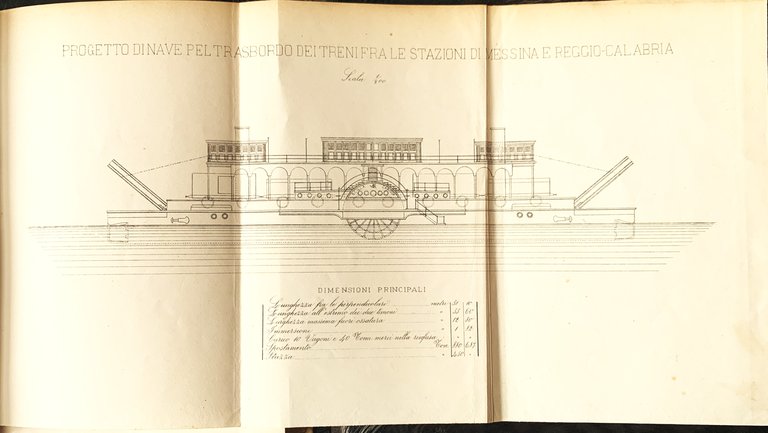 PROGETTO DI NAVE PEL TRASBORDO DEI TRENI FRA LE STAZIONI DI MESSINA E REGGIO-CALABRIA
Scala
DIMENSIONI PRINCIPALI
Lunghezza fra le perpendicolari metri 51
Lunghezza all'estremo dei due timoni " 55 60
Larghezza massima fuori ossatura " 12 50
Immersione " 1 72
Carico 10 Vagoni e 40 Tonn. merci nella
Spostamento Ton.
Stazza 450 "